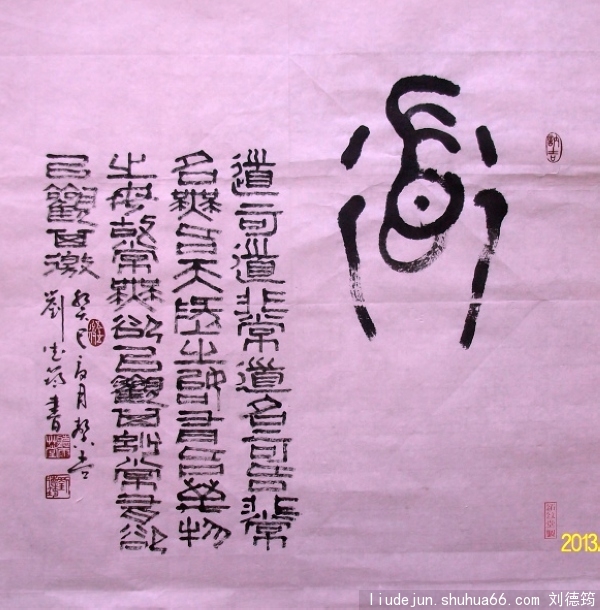 道
道可道非常道名可名非常
名無名天地之始有名萬物
之母故常無欲以觀其妙常有欲
以觀其徼
劉德筠書
2013.
liudejun.shuhua66.com 刘德筠